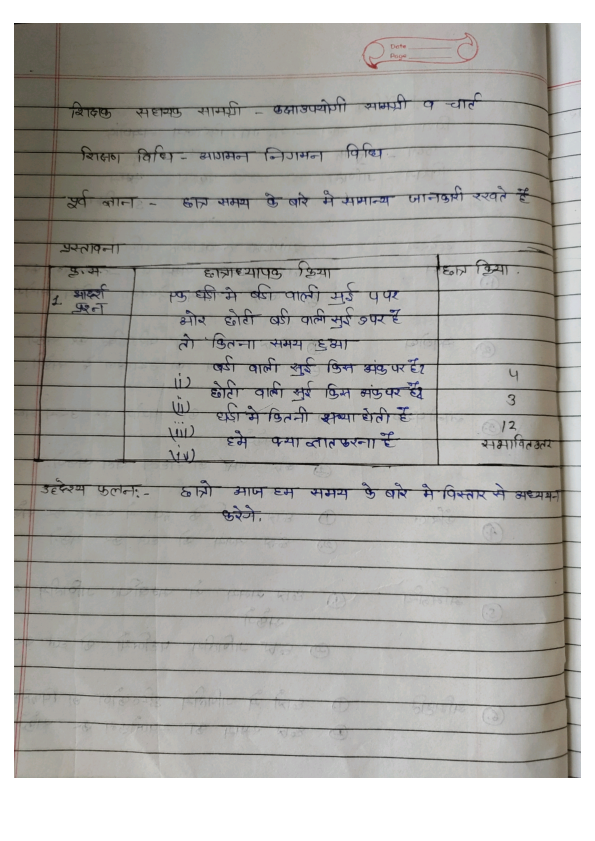 Date
Page
शिक्षक सहायक सामग्री - कक्षाउपयोगी सामग्री व चार्ट
शिक्षण विधि - आगमन निगमन विधि
पूर्व ज्ञान :- छात्र समय के बारे मे सामान्य जानकारी रखते हैं
प्रस्तावना
क्र.म छात्राध्यापक क्रिया छात्र क्रिया .
1 आदर्श एक घडी मे बडी वाली सुई 4 पर
प्रश्न और छोटी बडी वाली सुई 3 पर है
तो कितना समय हुआ
(i) बडी वाली सुई किस अंक पर है? 4
(ii) छोटी वाली सुई किस अंक पर है? 3
(iii) घडी मे कितनी संख्या होती हैं 12
(iv) हमे क्या ज्ञात करना हैं समभावितउत्तर
उद्देश्य कलन:- छात्रो आज हम समय के बारे मे विस्तार से अध्ययन
करेगे.